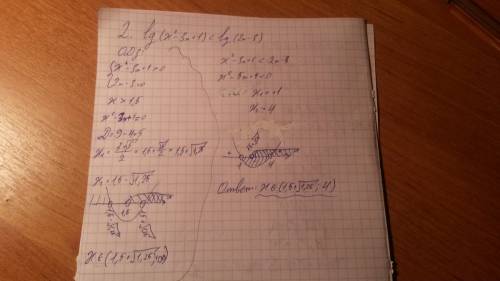 2. lg(x²-3x+1)<lg(2x-3)
ОДЗ:
{x²-3x+1>0
{2x-3>0
x>1,5
x²-3x+1=0
D=9-4=5
x₁=(3+√5)/2=1,5+√5/2=1,5+√1,25
x₂=1,5-√1,25
1,5
x∈(1,5+√1,25;+∞)
x²-3x+1<2x-3
x₂=4
4
Ответ: x∈(1,5+√1,25; 4)